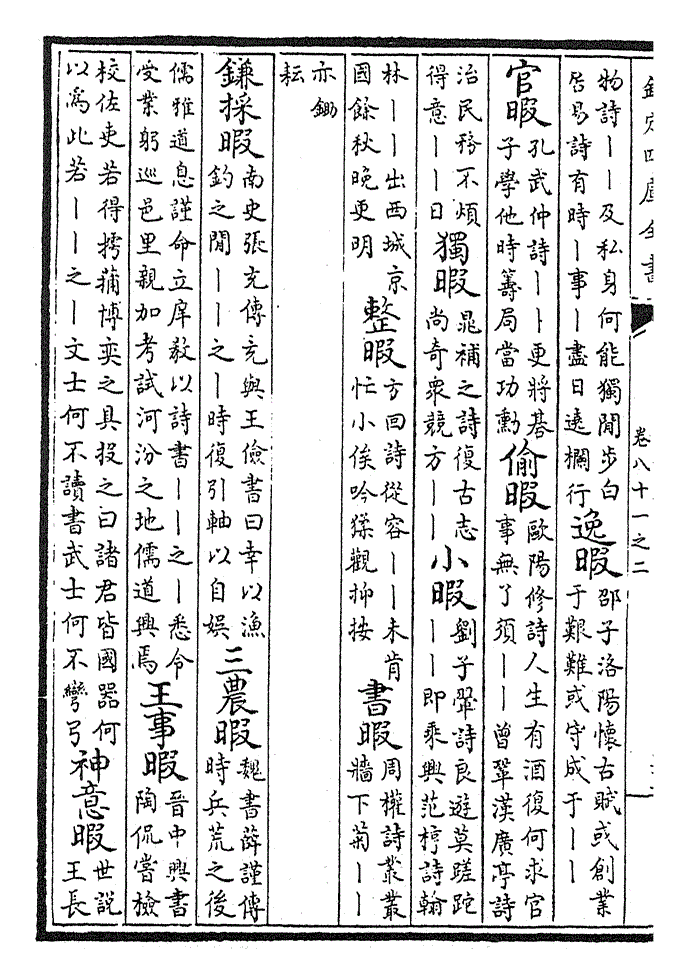 欽定四庫全書 卷八十一之二
物詩丨丨及私身何能獨閒步白
居易詩有時丨事丨盡日遶欄行
逸暇
邵子洛陽懷古賦或創業
于艱難或守成于丨丨
官暇
孔武仲詩丨丨更將碁
子學他時籌局當功勳
偷暇
歐陽修詩人生有酒復何求官
事無了須丨丨曾鞏漢廣亭詩
治民務不煩
得意丨丨日
獨暇
晁補之詩復古志
尚奇衆競方丨丨
小暇
劉子翬詩良遊莫蹉跎
丨丨即乘興范梈詩翰
林丨丨出西城京
國餘秋晚更明
整暇
方回詩從容丨丨未肯
忙小俟吟猱觀抑按
書暇
周權詩叢叢
牆下菊丨丨
亦鋤
耘
鎌採暇
南史張充傳充與王儉書曰幸以漁
釣之閒丨丨之丨時復引軸以自娛
三農暇
魏書薛謹傳
時兵荒之後
儒雅道息謹命立庠敎以詩書丨丨之丨悉令
受業躬巡邑里親加考試河汾之地儒道興焉
王事暇
晉中興書
陶侃嘗檢
校佐吏若得摴蒱博奕之具投之曰諸君皆國器何
以爲此若丨丨之丨文士何不讀書武士何不彎弓
神意暇
世説
王長